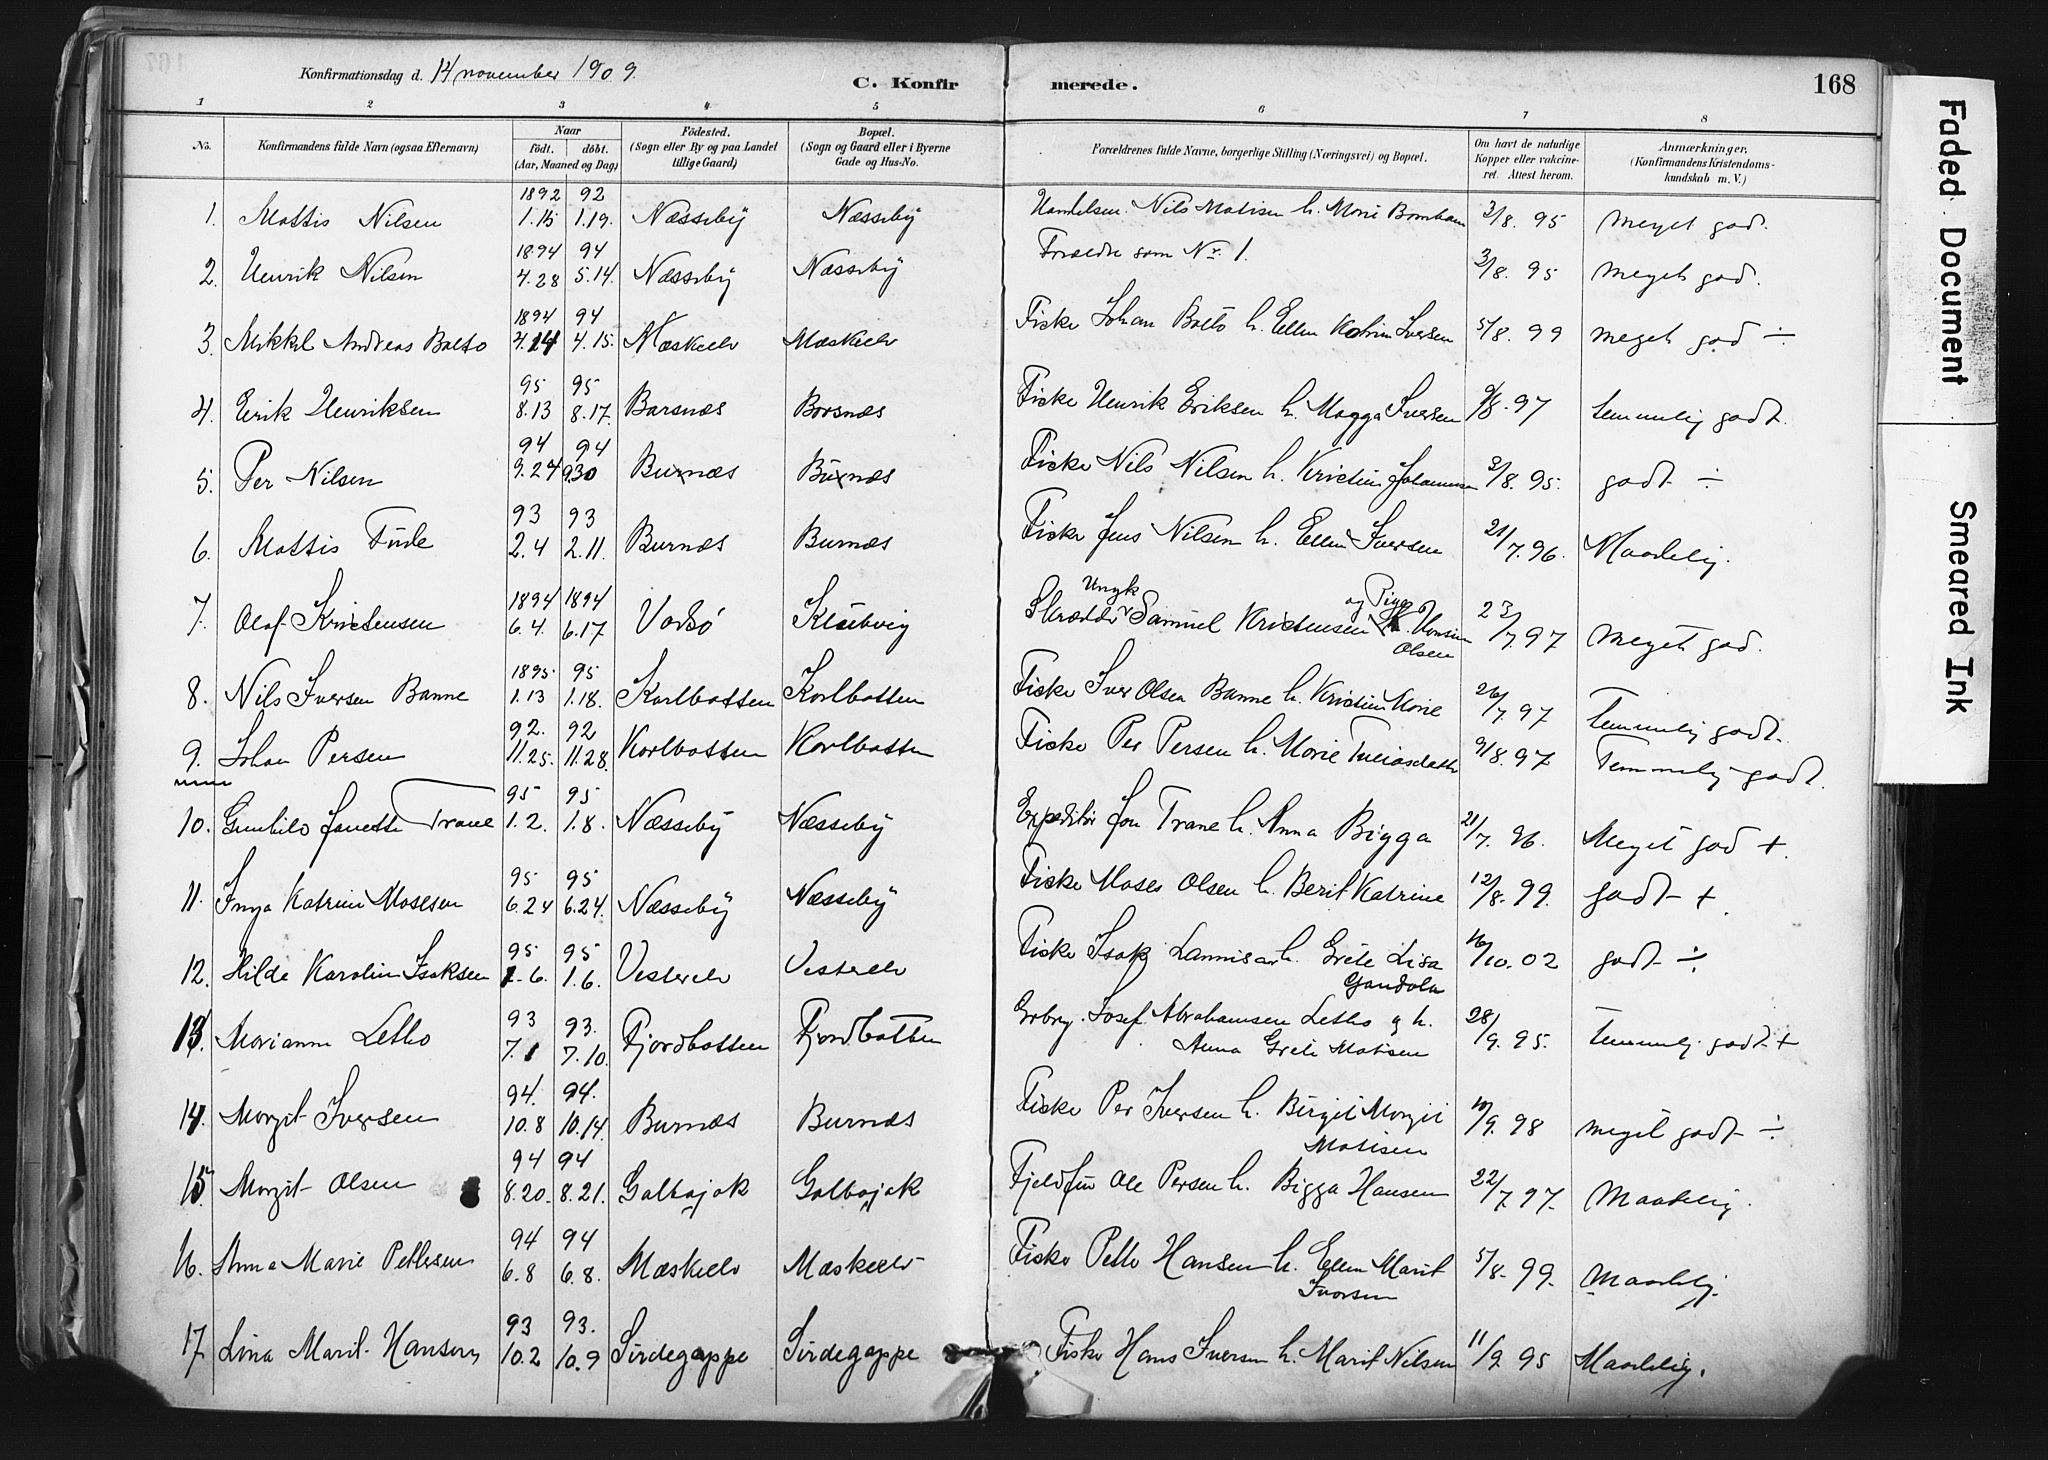 Konfirmationsdag d. 14 november 1909.
C. Konfirmerede.
168
1 2 3 4 5 6 7 8
No.
Konfirmandens fulde Navn (ogsaa Efternavn)
Naar
födt. döbt.
(Aar, Maaned og Dag)
Födested.
(Sogn eller By og paa Landet
tillige Gaard)
Bopæl.
(Sogn og Gaard eller i Byerne
Gade og Hus-No.
Forældrenes fulde Navne, borgerlige Stilling (Næringsvei) og Bopæl.
Om havt de naturlige
Kopper eller vakcine-
ret. Attest herom.
Anmærkninger.
(Konfirmandens Kristendoms-
kundskab m. V.)
1892 92
1. Mattis Nilsen 1.15 1.19. Næsseby Næsseby Nils Matisen h. Marie 3/8. 95 Meget god.
1894 94
2. Henrik Nilsen 4.28 5.14. Næsseby Næsseby Forældre som Nr. 1. 3/8. 95 Meget god.
1894 94
3. Mikkel Andreas Balto 4.14 4.15. Mæskelv Mæskelv Fisker Johan Balto h. Ellen Katrin Iversen 5/8. 99 meget god ÷
95 95
4. Erik Henriksen 8.13 8.17. Barsnæs Barsnæs Fisker Henrik Eriksen h. Magga Iversen /8. 97 temmelig godt.
94 94
5. Per Nilsen 9.24 9.30 Burnæs Burnæs Fisker Nils Nilsen h. Kristine Johannesen 3/8. 95. godt ÷
93 93
6. Mattis 2.4 2.11. Burnæs Burnæs Fisker Jens Nilsen h. Ellen Iversen 21/7. 96. Maadelig.
1894 1894
7. Olaf Kristensen 6.4. 6.17 Vadsö Klubvig Skrædder Ungk. Samuel Kristensen og Pige Olsen 23/7. 97 Meget god.
1895 95
8. Nils Iversen Banne 1.13 1.18. Karlbotten Karlbotten Fisker Iver Olsen Banne h. Kristine Marie 26/7. 97 temmelig godt.
92. 92
9. Johan Persen 11.25. 11.28. Karlbotten Karlbotten Fisker Per Persen h. Marie 9/8. 97 Temmelig godt.
95 95
10. Gunhild Janette Trane 1.2. 1.8. Næsseby Næsseby Expeditör Jon Trane h. Anna Bigga 21/7. 96. Meget god +.
95 95
11. Inga Katrine Mosesen 6.24 6.24. Næsseby Næsseby Fisker Moses Olsen h. Berit Katrine 12/8. 99. godt +.
95 95
12. Hilde Karoline Isaksen 1.6. 1.6. Vesterelv Vesterelv Fisker Isak h. Grete Lisa 16/10. 02 godt ÷
93 93.
13. Marianne Letho 7.1 7.10. Fjordbotten Fjordbotten Josef Abrahamsen Letho og h. 28/9. 95. temmelig godt +
Anna Grete Matisen
94. 94.
14. Margit Iversen 10.8 10.14. Burnæs Burnæs Fisker Per Iversen h. Birgit Margit /9. 98 meget godt ÷
Matisen
94 94
15. Margit Olsen 8.20. 8.21. Galbajok Galbajok Fjeldfin Ole Persen h. Bigga Hansen 22/7. 97. Maadelig.
94 94
16. Anna Marie Pettersen 6.8 6.8. Mæskelv Mæskelv Fisker Petter Hansen h. Ellen Marit 5/8. 99. Maadelig.
Iversen
93 93.
17. Lina Marit Hansen 10.2 10.9 Sirdegoppe Sirdegoppe Fisker Hans Iversen h. Marit Nilsen 11/9. 95 Maadelig.
Faded Document
Smeared Ink